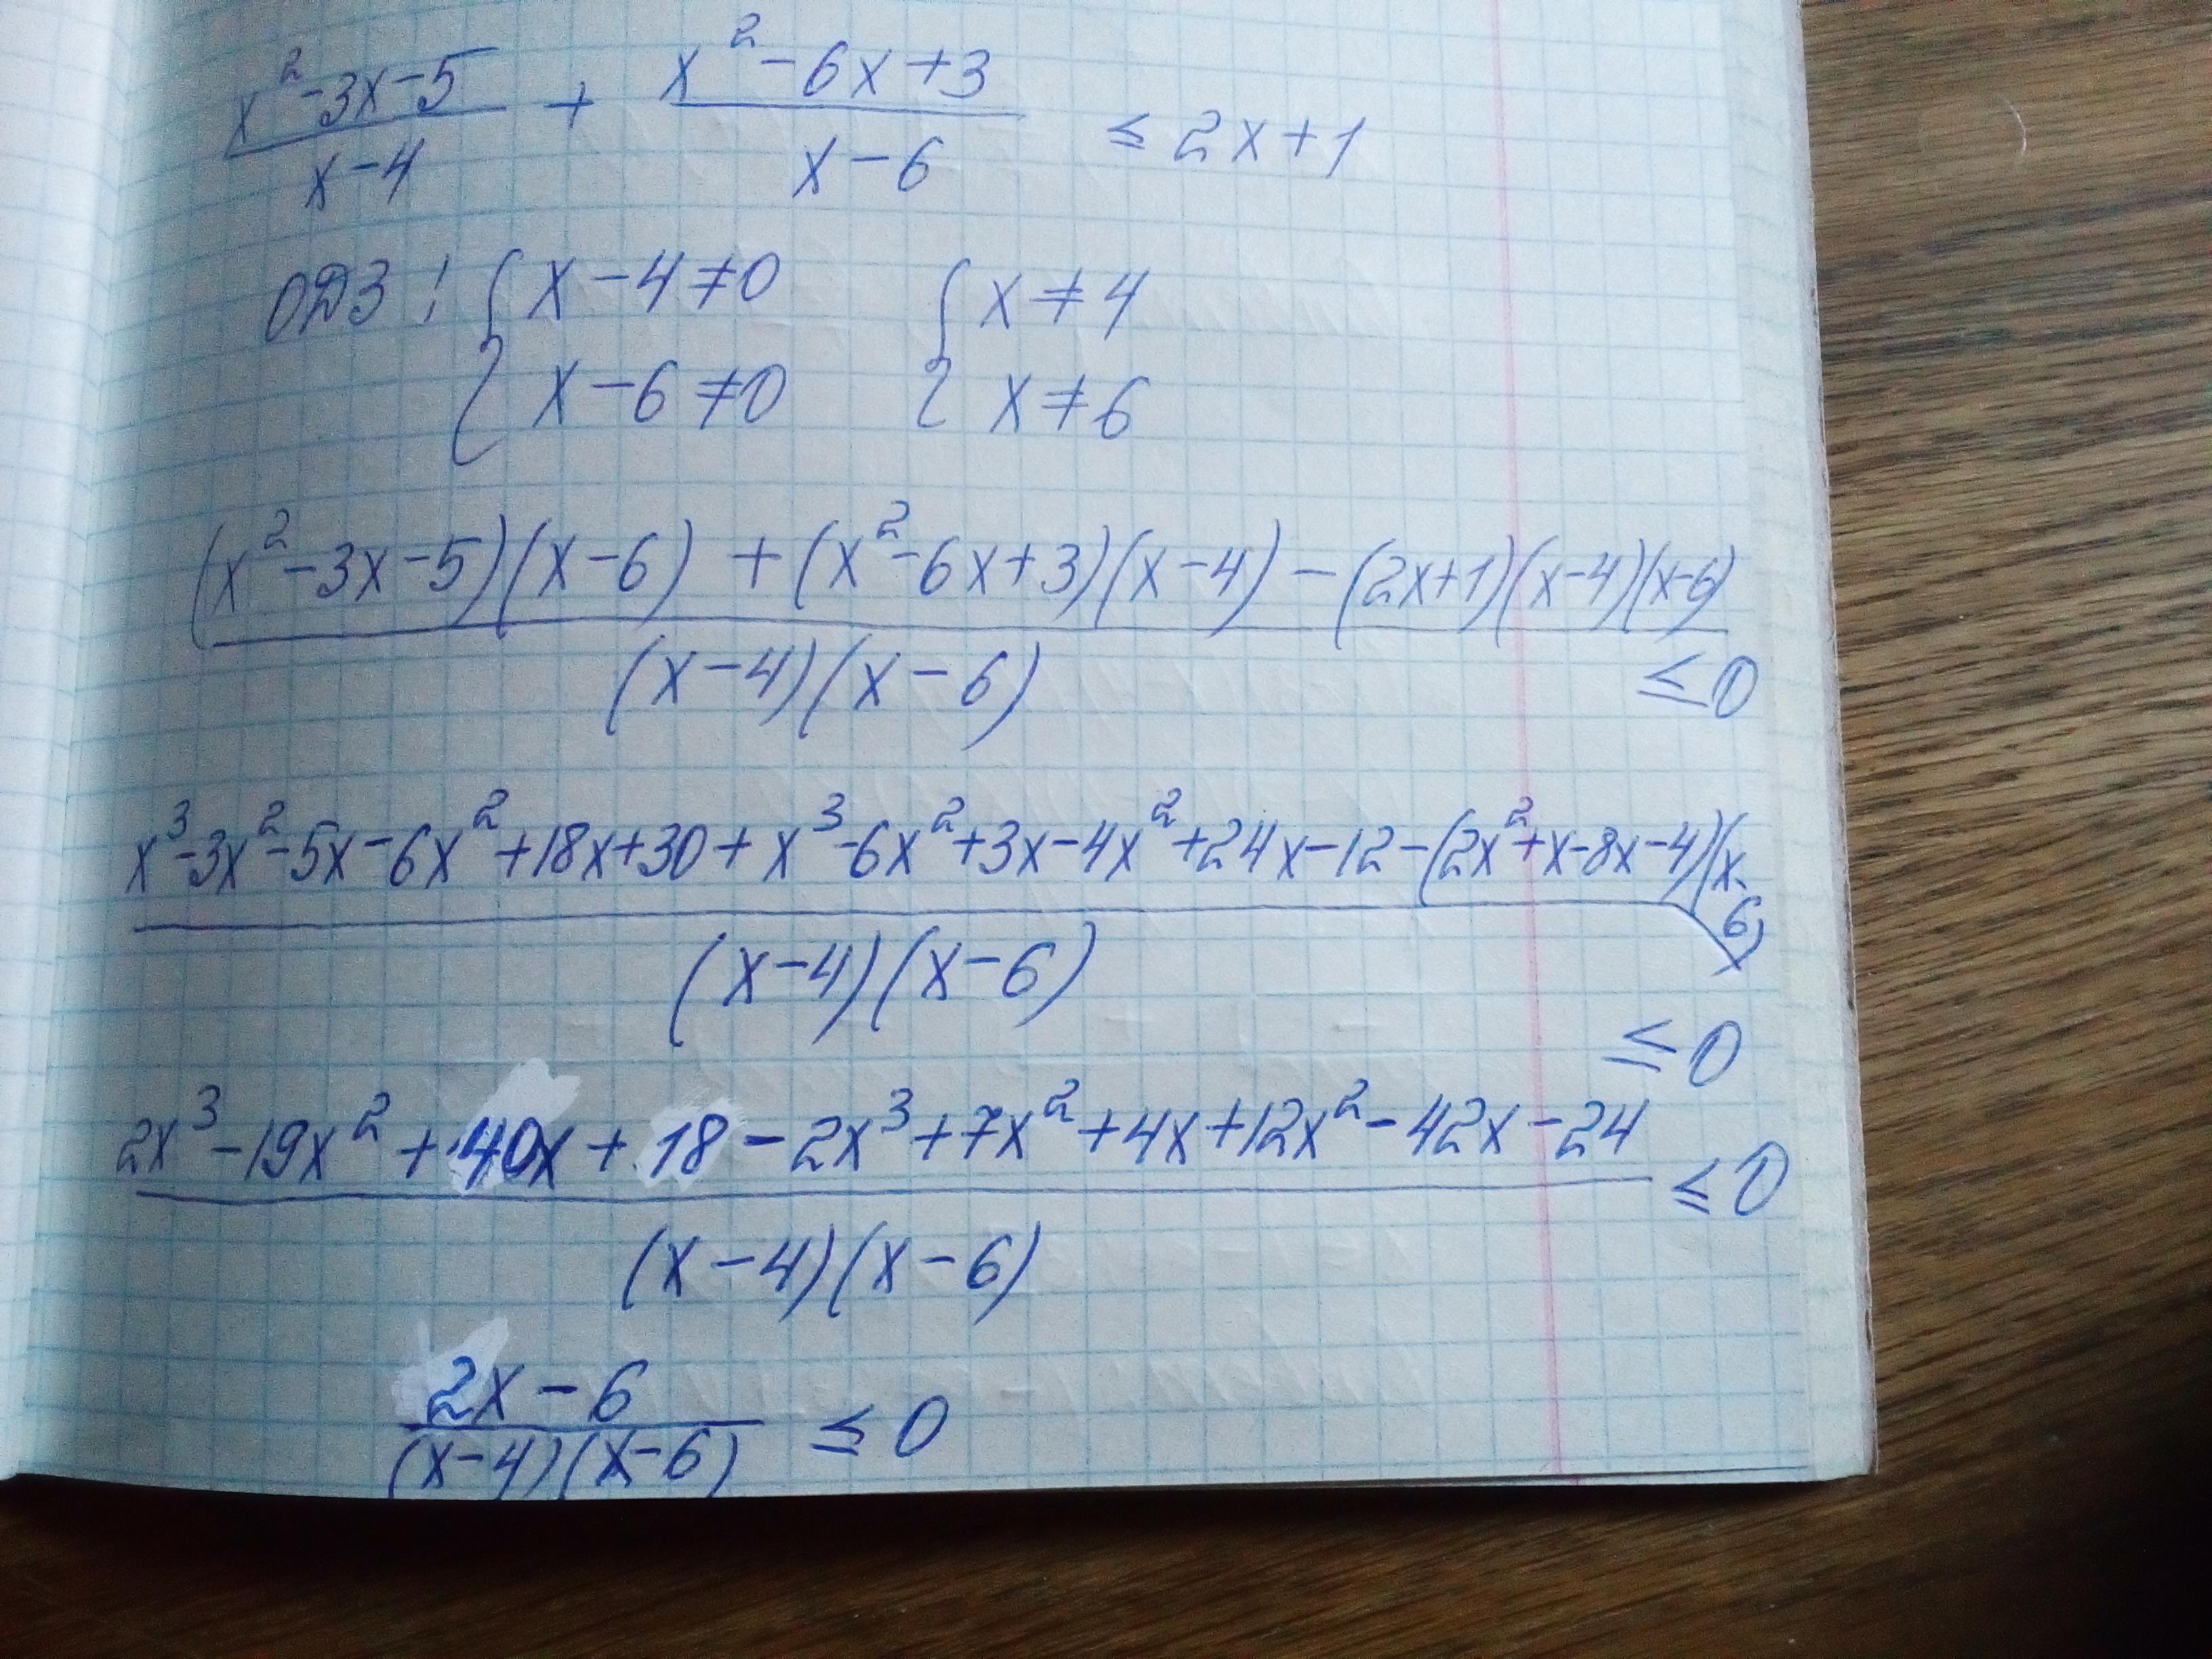 (x²-3x-5)/(x-4) + (x²-6x+3)/(x-6) ≤ 2x+1
ОДЗ: { x-4≠0 { x≠4
{ x-6≠0 { x≠6
((x²-3x-5)(x-6) + (x²-6x+3)(x-4) - (2x+1)(x-4)(x-6))/((x-4)(x-6)) ≤ 0
(x³-3x²-5x-6x²+18x+30+x³-6x²+3x-4x²+24x-12-(2x²+x-8x-4)(x-6))/((x-4)(x-6)) ≤ 0
(2x³-19x²+40x+18-2x³+7x²+4x+12x²-42x-24)/((x-4)(x-6)) ≤ 0
(2x-6)/((x-4)(x-6)) ≤ 0